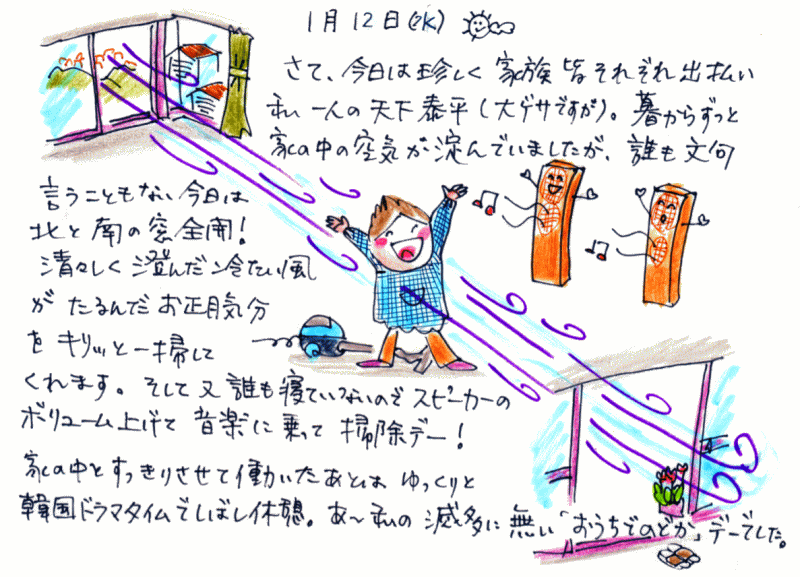 1月12日(水)
さて、今日は珍しく 家族皆それぞれ出払い
私一人の天下泰平(大ゲサですが)。暮からずっと
家の中の空気が淀んでいましたが、誰も文句
言うこともない今日は
北と南の窓全開!
清々しく澄んだ冷たい風
が たるんだお正月気分
を キリッと一掃して
くれます。そして又誰も寝ていないのでスピーカーの
ボリューム上げて 音楽に乗って 掃除デー!
家の中をすっきりさせて働いたあとは ゆっくりと
韓国ドラマタイムでしばし休憩。あ〜私の滅多に無い「おうちでのどか」デーでした。